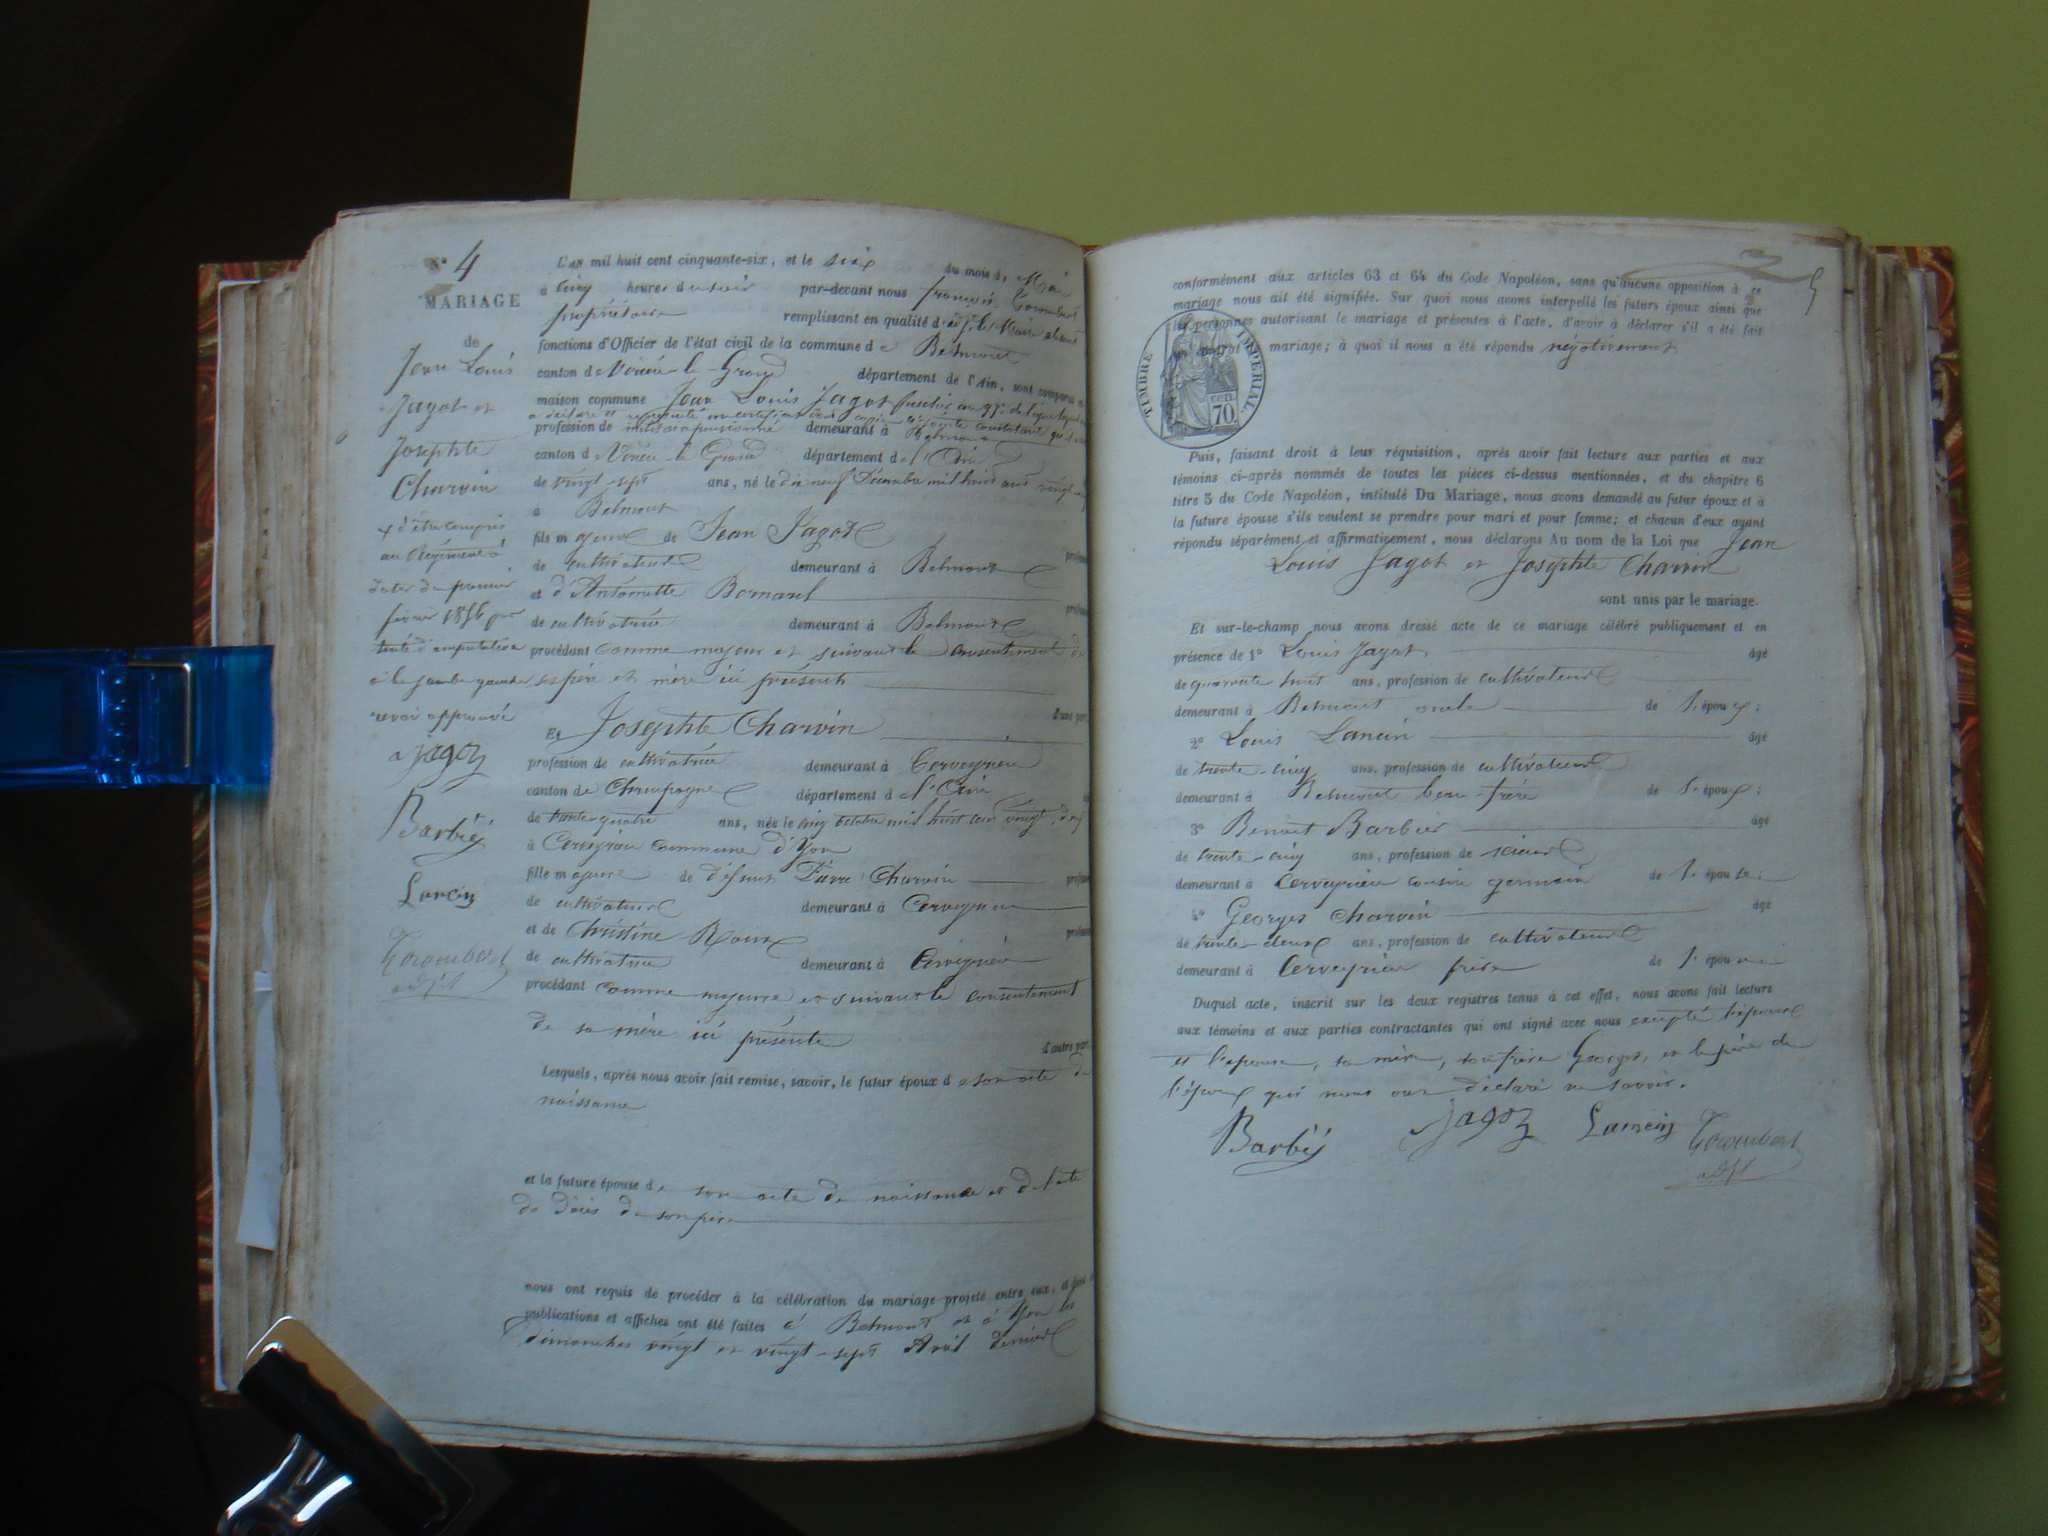 N° 4
MARIAGE
de
Jean Louis
Jagot et
Josephte
Charvin
d'être compris
au Régiment à
dater du premier
février 1856 pour
d'amputation
à la jambe gauche
renvoi approuvé
Jagot
Barbier
Lancin
Trombert
adjt
L'AN mil huit cent cinquante-six, et le six du mois de Mai
à cinq heures du soir par-devant nous françois Trombert
propriétaire remplissant en qualité d'adjt le Maire absent
fonctions d'Officier de l'état civil de la commune de Belmont
canton de Virieu-le-Grand département de l'Ain, sont comparus
maison commune Jean Louis Jagot fusilier au de ligne
a déclaré et certificat copie constatant qu'il
profession de militaire pensionné demeurant à Belmont
canton de Virieu-le Grand département de l'Ain
de vingt-sept ans, né le dix neuf Décembre mil huit cent vingt
à Belmont
fils majeur de Jean Jagot
de cultivateur demeurant à Belmont
et d'Antoinette Bornarel
de cultivatrice demeurant à Belmont
procédant comme majeur et suivant le consentement de
ses père et mère ici présents
d'une part
Et Josephte Charvin
profession de cultivatrice demeurant à Cerveyrieu
canton de Champagne département de l'Ain
de trente quatre ans, née le cinq octobre mil huit cent vingt
à Cerveyrieu commune d'Yon
fille majeure de défunt Pierre Charvin
de cultivateur demeurant à Cerveyrieu
et de Christine Roux
de cultivatrice demeurant à Cerveyrieu
procédant comme majeure et suivant le consentement
de sa mère ici présente
d'autre part
Lesquels, après nous avoir fait remise, savoir, le futur époux de son acte de
naissance
et la future épouse de son acte de naissance et de l'acte
de décès de son père
nous ont requis de procéder à la célébration du mariage projeté entre eux,
publications et affiches ont été faites à Belmont et à Yon les
dimanches vingt et vingt-sept Avril dernier
5
conformément aux articles 63 et 64 du Code Napoléon, sans qu'aucune opposition à ce
mariage nous ait été signifiée. Sur quoi nous avons interpellé les futurs époux ainsi que
les personnes autorisant le mariage et présentes à l'acte, d'avoir à déclarer s'il a été fait
un contrat de mariage; à quoi il nous a été répondu négativement
TIMBRE IMPERIAL
CENT. 70.
Puis, faisant droit à leur réquisition, après avoir fait lecture aux parties et aux
témoins ci-après nommés de toutes les pièces ci-dessus mentionnées, et du chapitre 6
titre 5 du Code Napoléon, intitulé Du Mariage, nous avons demandé au futur époux et à
la future épouse s'ils veulent se prendre pour mari et pour femme; et chacun d'eux ayant
répondu séparément et affirmativement, nous déclarons Au nom de la Loi que Jean
Louis Jagot et Josephte Charvin
sont unis par le mariage.
Et sur-le-champ nous avons dressé acte de ce mariage célébré publiquement et en
présence de 1° Louis Jagot âgé
de quarante huit ans, profession de cultivateur
demeurant à Belmont oncle de l'époux;
2° Louis Lancin âgé
de trente-cinq ans, profession de cultivateur
demeurant à Belmont beau-frère de l'époux;
3° Benoit Barbier âgé
de trente-cinq ans, profession de scieur
demeurant à Cerveyrieu cousin germain de l'épouse;
4° Georges Charvin âgé
de trente-deux ans, profession de cultivateur
demeurant à Cerveyrieu frère de l'épouse
Duquel acte, inscrit sur les deux registres tenus à cet effet, nous avons fait lecture
aux témoins et aux parties contractantes qui ont signé avec nous excepté
et l'épouse, sa mère, son frère Georges, et la mère de
l'époux qui nous ont déclaré ne savoir.
Barbier Jagot Lancin Trombert
adjt